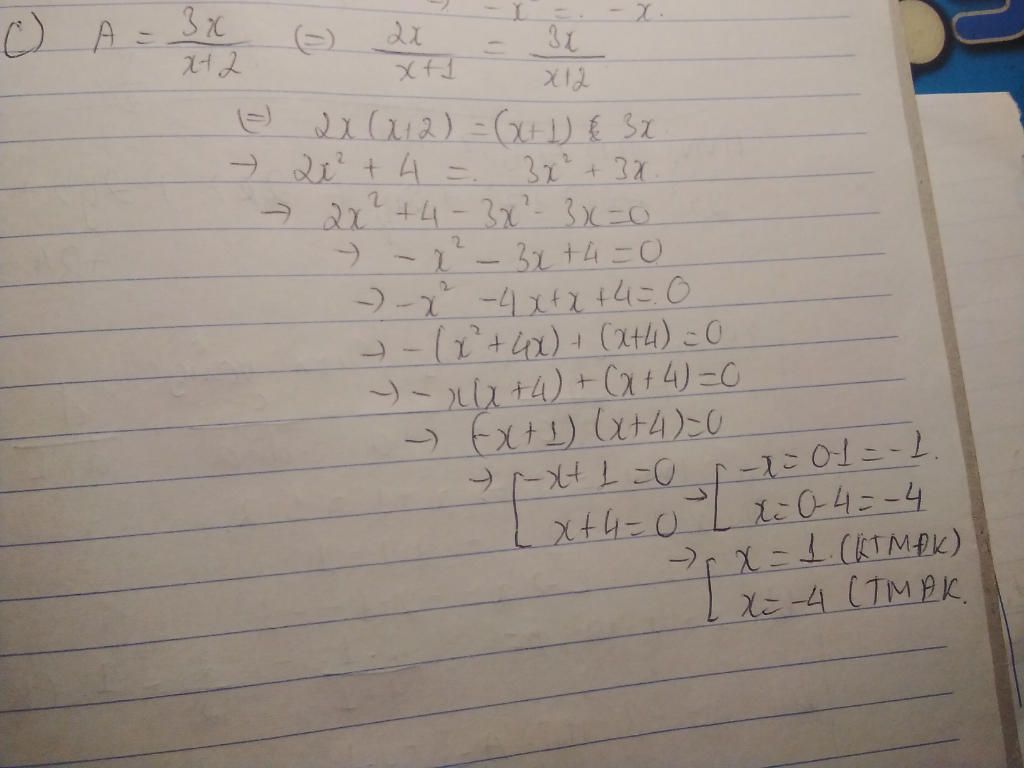 -x² = -x.
C) A = 3x/(x+2) (=) 2x/(x+1) = 3x/(x+2)
(=) 2x(x+2) = (x+1) 3x
→ 2x² + 4 = 3x² + 3x.
→ 2x² + 4 - 3x² - 3x = 0
→ -x² - 3x + 4 = 0
→ -x² - 4x + x + 4 = 0
→ -(x² + 4x) + (x+4) = 0
→ -x(x+4) + (x+4) = 0
→ (-x+1) (x+4) = 0
→ [ -x+1 = 0 → [ -x = 0-1 = -1.
x+4 = 0 x = 0-4 = -4
→ [ x = 1. (KTMĐK)
x = -4 (TMĐK.